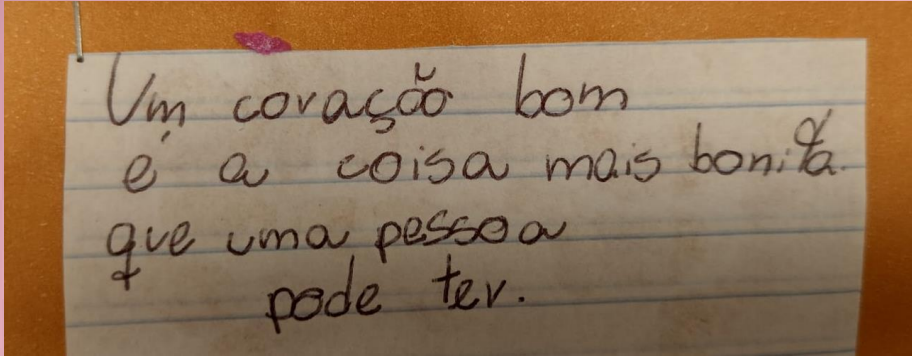 Um coração bom
é a coisa mais bonita.
que uma pessoa
pode ter.